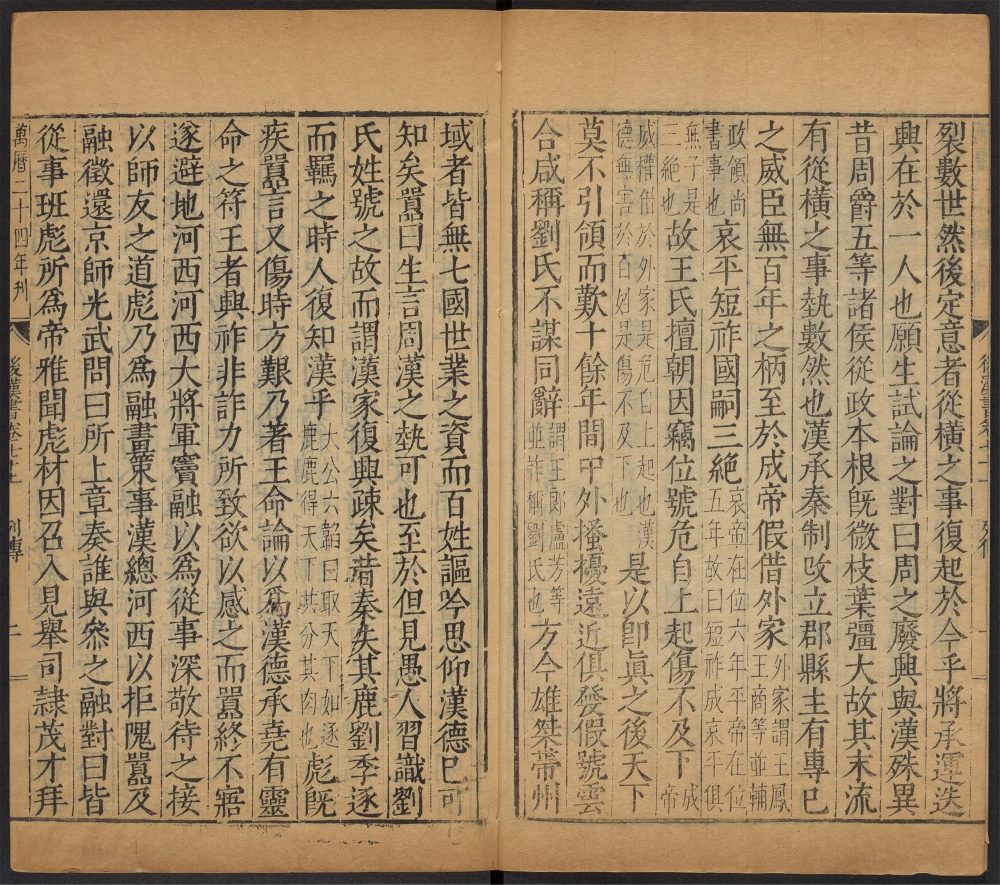 裂數世然後定意者從橫之事復起於今乎將承運迭
興在於一人也願生試論之對曰周之廢興與漢殊異
昔周爵五等諸侯從政本根旣微枝葉彊大故其末流
有從橫之事埶數然也漢承秦制攺立郡縣主有專已
之威臣無百年之柄至於成帝假借外家外家謂王鳳王商等並輔
政領尚書事也哀平短祚國嗣三絶哀帝在位六年平帝在位五年故曰短祚成哀平俱
無子是三絶也故王氏擅朝因竊位號危自上起傷不及下成帝
威權借於外家是危自上起也漢德無害於百姓是傷不及下也是以卽眞之後天下
莫不引領而歎十餘年間中外搔擾遠近俱發假號雲
合咸稱劉氏不謀同辭謂王郎盧芳等並詐稱劉氏也方今雄桀帶州
域者皆無七國世業之資而百姓謳吟思仰漢德已可
知矣囂曰生言周漢之埶可也至於但見愚人習識劉
氏姓號之故而謂漢家復興疎矣昔秦失其鹿劉季逐
而羈之時人復知漢乎太公六韜曰取天下如逐鹿鹿得天下共分其肉也彪旣
疾囂言又傷時方艱乃著王命論以爲漢德承堯有靈
命之符王者興祚非詐力所致欲以感之而囂終不寤
遂避地河西河西大將軍竇融以爲從事深敬待之接
以師友之道彪乃爲融畫策事漢總河西以拒隗囂及
融徵還京師光武問曰所上章奏誰與參之融對曰皆
從事班彪所爲帝雅聞彪材因召入見舉司隷茂才拜
萬曆二十四年刊
後漢書卷七十
列傳
二